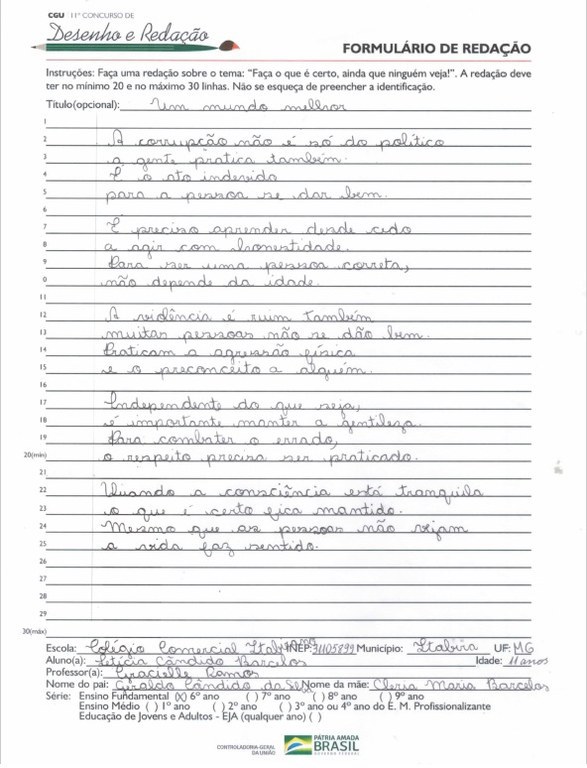 CGU 11º CONCURSO DE
Desenho e Redação
FORMULÁRIO DE REDAÇÃO
Instruções: Faça uma redação sobre o tema: "Faça o que é certo, ainda que ninguém veja!". A redação deve
ter no mínimo 20 e no máximo 30 linhas. Não se esqueça de preencher a identificação.
Título(opcional): Um mundo melhor
1
2 A corrupção não é só do político
3 a gente pratica também.
4 É o ato indevido
5 para a pessoa se dar bem.
6
7 É preciso aprender desde cedo
8 a agir com honestidade.
9 Para ser uma pessoa correta,
0 não depende da idade.
11
12 A violência é ruim também
13 muitas pessoas não se dão bem.
14 Praticam a agressão física
15 e o preconceito a alguém.
16
17 Independente do que seja,
18 é importante manter a gentileza.
19 Para combater o errado,
20(min) o respeito precisa ser praticado.
21
22 Quando a consciência está tranquila
23 o que é certo fica mantido.
24 Mesmo que as pessoas não vejam
25 a vida faz sentido.
26
27
28
29
30(máx)
Escola: Colégio Comercial Itabira INEP: 31105899 Município: Itabira UF: MG
Aluno(a): Letícia Cândido Barcelos Idade: 11 anos
Professor(a): Gracielle Ramos
Nome do pai: Geraldo Cândido da Nome da mãe: Cleria Maria Barcelos
Série: Ensino Fundamental (X) 6º ano ( ) 7º ano ( ) 8º ano ( ) 9º ano
Ensino Médio ( ) 1º ano ( ) 2º ano ( ) 3º ano ou 4º ano do E. M. Profissionalizante
Educação de Jovens e Adultos - EJA (qualquer ano) ( )
CONTROLADORIA-GERAL
DA UNIÃO
PÁTRIA AMADA
BRASIL